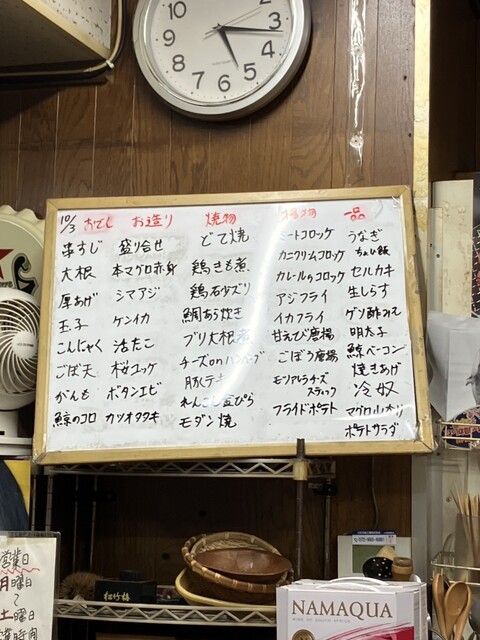 10
2
3
4
5
6
7
8
9
10/3
おでし
串すじ
大根
厚あげ
玉子
こんにゃく
ごぼ天
がんも
鯨のコロ
お造り
盛り合せ
本マグロ赤身
シマアジ
ケンイカ
活たこ
桜ユッケ
ボタンエビ
カツオタタキ
焼物
どて焼
鶏きも煮
鶏石少ズリ
鯛あら炊き
ブリ大根煮
チーズonハンバーグ
豚テキ
れんこん
モダン焼
揚物
ミートコロッケ
カニクリームコロッケ
カレールのコロッケ
アジフライ
イカフライ
甘えび唐揚
ごぼう唐揚
モツアレラチーズ
スティック
フライドポテト
一品
うなぎ
ちょい飯
セルカキ
生しらす
ゲソ酢みそ
明太子
鯨ベーコン
焼きあげ
冷奴
マグロ山かけ
ポテトサラダ
松竹梅
営業日
月曜日
〜
土曜日
営業時間
NAMAQUA